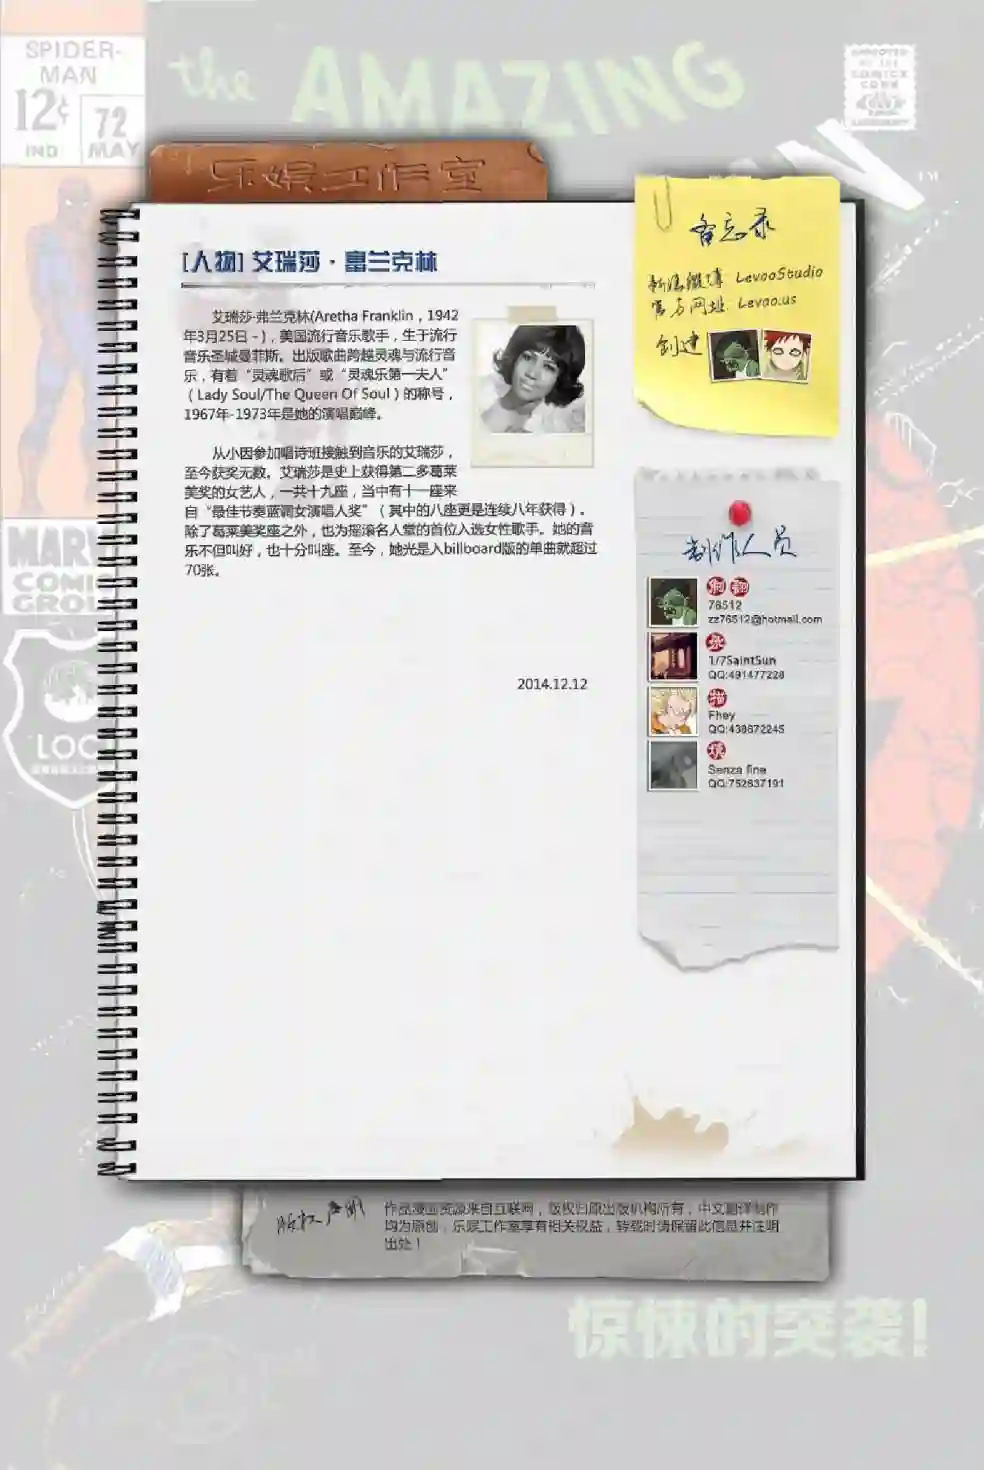 SPIDER-
MAN
12¢
IND
72
MAY
the AMAZING
APPROVED
BY THE
COMICS
CODE
AUTHORITY
TM
乐娱工作室
备忘录
新浪微博 LevooStudio
官方网址 Levoo.us
创建
[人物] 艾瑞莎·富兰克林
艾瑞莎·弗兰克林(Aretha Franklin，1942
年3月25日－)，美国流行音乐歌手，生于流行
音乐圣城曼菲斯。出版歌曲跨越灵魂与流行音
乐，有着“灵魂歌后”或“灵魂乐第一夫人”
（Lady Soul/The Queen Of Soul）的称号，
1967年-1973年是她的演唱巅峰。
从小因参加唱诗班接触到音乐的艾瑞莎，
至今获奖无数。艾瑞莎是史上获得第二多葛莱
美奖的女艺人，一共十九座，当中有十一座来
自“最佳节奏蓝调女演唱人奖”（其中的八座更是连续八年获得）。
除了葛莱美奖座之外，也为摇滚名人堂的首位入选女性歌手。她的音
乐不但叫好，也十分叫座。至今，她光是入billboard版的单曲就超过
70张。
2014.12.12
制作人员
翻
76512
zz76512@hotmail.com
1/7SaintSun
QQ:491477228
描
Fhey
QQ:438672245
Senza fine
QQ:752637191
MARV
COMI
GROU
LOC
版权声明
作品漫画资源来自互联网，版权归原出版机构所有，中文翻译制作
均为原创，乐娱工作室享有相关权益，转载时请保留此信息并注明
出处！
惊悚的突袭!